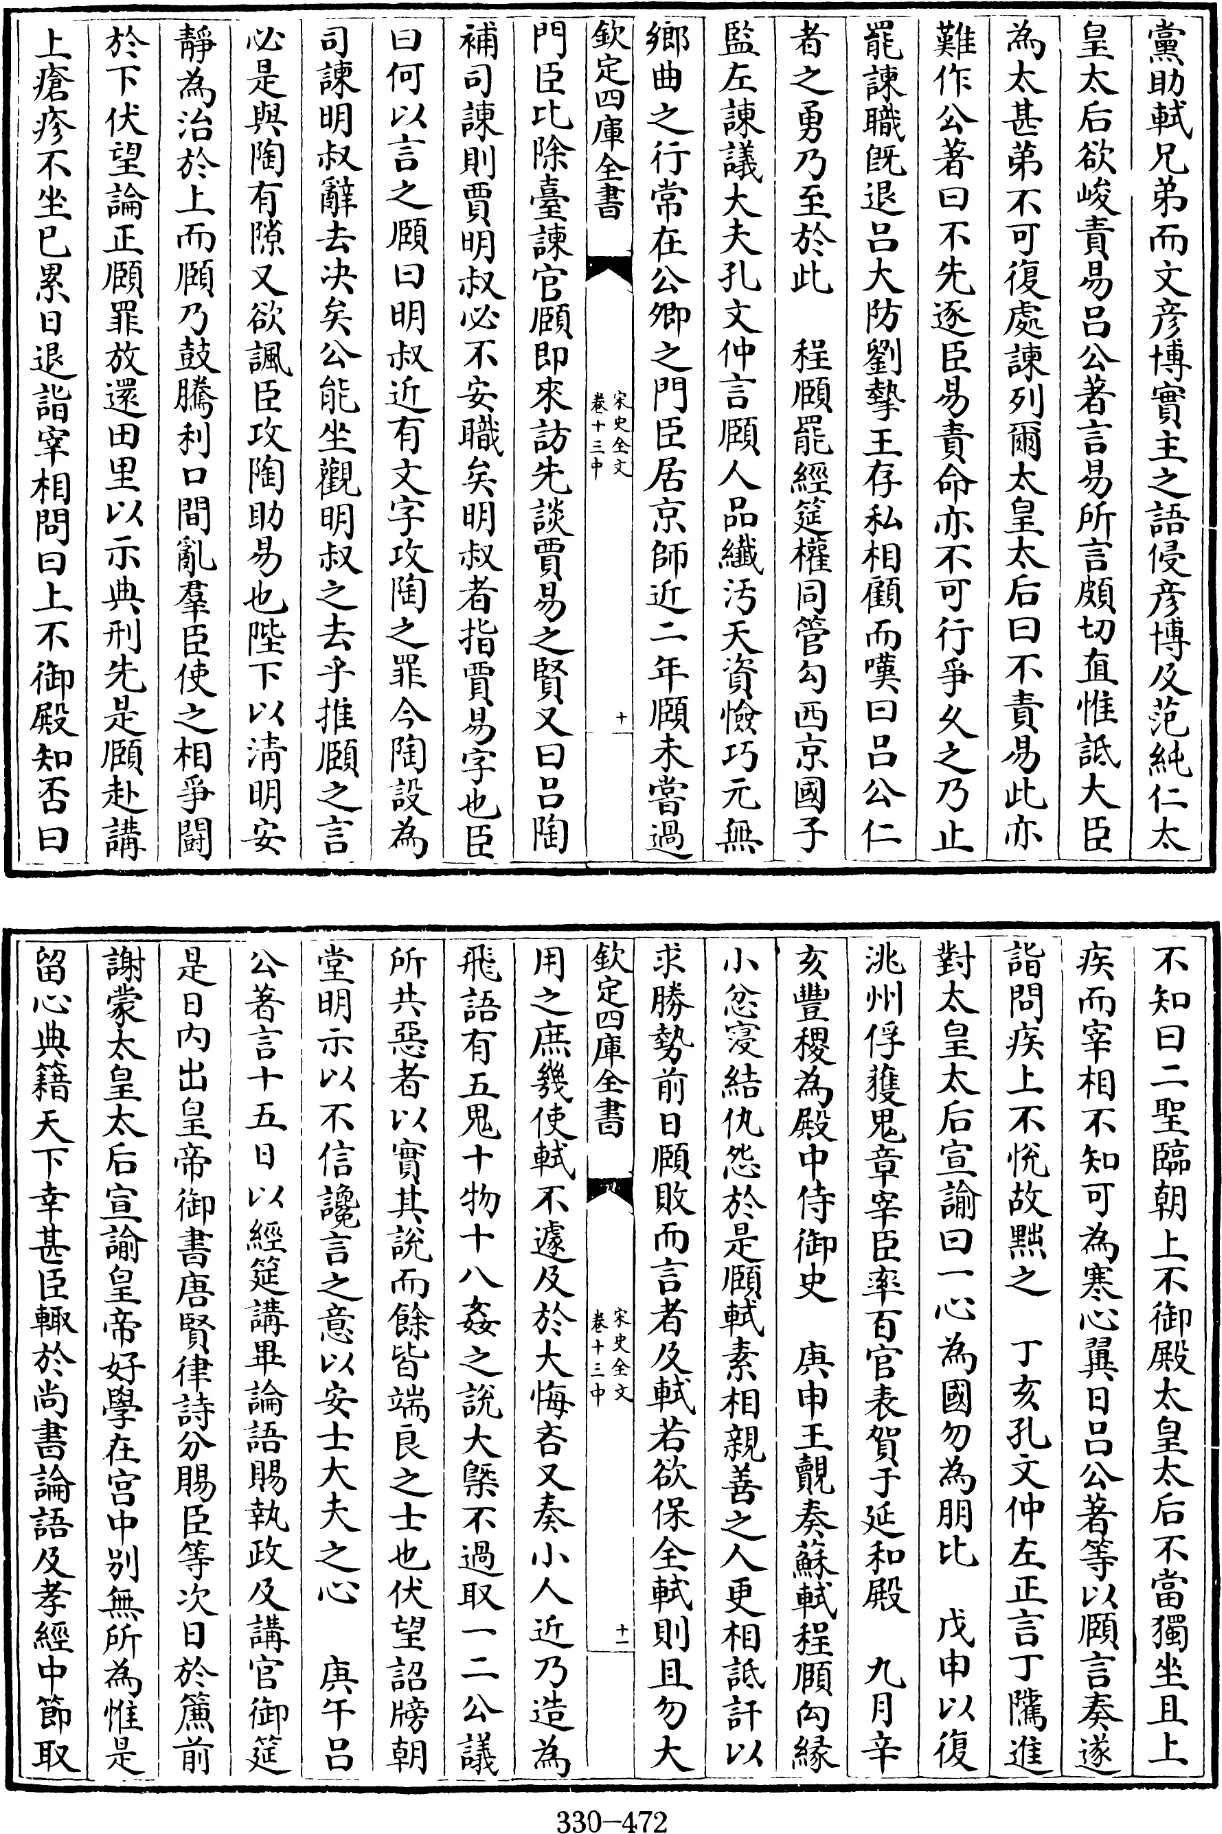 黨助軾兄弟而文彦博實主之語侵彦博及范純仁太
皇太后欲峻責易吕公著言易所言頗切直惟詆大臣
為太甚第不可復處諫列爾太皇太后曰不責易此亦
難作公著曰不先逐臣易責命亦不可行爭久之乃止
罷諫職既退吕大防劉摯王存私相顧而嘆曰吕公仁
者之勇乃至於此　程頤罷經筵權同管勾西京國子
監左諫議大夫孔文仲言頤人品纎汚天資憸巧元無
鄉曲之行常在公卿之門臣居京師近二年頤未嘗過
欽定四庫全書
宋史全文
卷十三中
十
門臣比除臺諫官頤即來訪先談賈易之賢又曰吕陶
補司諫則賈明叔必不安職矣明叔者指賈易字也臣
曰何以言之頤曰明叔近有文字攻陶之罪今陶設為
司諫明叔辭去决矣公能坐觀明叔之去乎推頤之言
必是與陶有隙又欲諷臣攻陶助易也陛下以清明安
靜為治於上而頤乃鼓騰利口間亂羣臣使之相爭鬭
於下伏望論正頤罪放還田里以示典刑先是頤赴講
上瘡疹不坐已累日退詣宰相問曰上不御殿知否曰
不知曰二聖臨朝上不御殿太皇太后不當獨坐且上
疾而宰相不知可為寒心翼日吕公著等以頤言奏遂
詣問疾上不悅故黜之　丁亥孔文仲左正言丁隲進
對太皇太后宣諭曰一心為國勿為朋比　戊申以復
洮州俘獲鬼章宰臣率百官表賀于延和殿　九月辛
亥豐稷為殿中侍御史　庚申王覿奏蘇軾程頤向緣
小忿寖結仇怨於是頤軾素相親善之人更相詆訐以
求勝勢前日頤敗而言者及軾若欲保全軾則且勿大
欽定四庫全書
宋史全文
卷十三中
十一
用之庶幾使軾不遽及於大悔吝又奏小人近乃造為
飛語有五鬼十物十八姦之說大槩不過取一二公議
所共惡者以實其說而餘皆端良之士也伏望詔牓朝
堂明示以不信讒言之意以安士大夫之心　庚午吕
公著言十五日以經筵講畢論語賜執政及講官御筵
是日内出皇帝御書唐賢律詩分賜臣等次日於簾前
謝蒙太皇太后宣諭皇帝好學在宮中别無所為惟是
留心典籍天下幸甚臣輙於尚書論語及孝經中節取
330-472